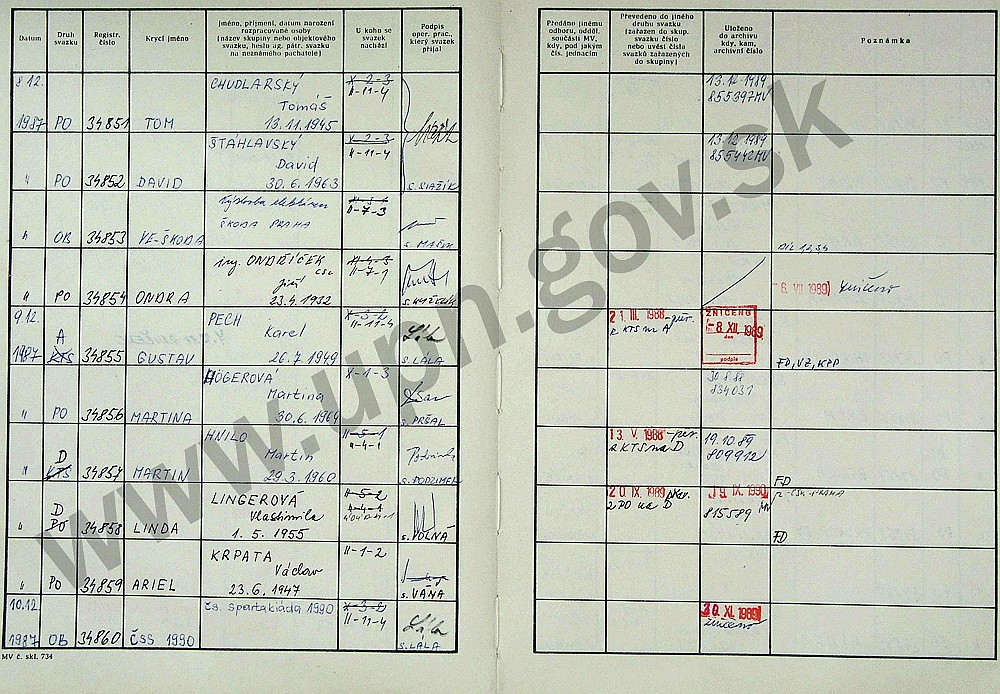 Datum
Druh svazku
Registr. číslo
Krycí jméno
Jméno, příjmení, datum narození
rozpracované osoby
(název skupiny nebo objektového
svazku, heslo ag. pátr. svazku
na neznámého pachatele)
U koho se
svazek
nachází
Podpis
oper. prac.,
který svazek
přijal
Předáno jinému
odboru, odděl.
součásti MV,
kdy, pod jakým
čís. jednacím
Převedeno do jiného
druhu svazku
(zařazen do skup.
svazku číslo
nebo uvést čísla
svazků zařazených
do skupiny)
Uloženo
do archivu
kdy, kam,
archivní číslo
Poznámka
8.12. CHUDLARSKÝ X-2-3 13.12.1989
Tomáš II-11-4 855397MV
1987 PO 34851 TOM 13.11.1945
ŠTÁHLAVSKÝ X-2-3 13.12.1989
David II-11-4 855442MV
" PO 34852 DAVID 30.6.1963 s. SLAŽÍK
Výstavba elektráren
ŠKODA PRAHA II-7-3
" OB 34853 VE-ŠKODA s. MAŠEK DÍL 1,2,3,4
ing. ONDŘÍČEK CSc X-4-3
Jiří II-7-1 -6. VII 1989 zničeno
" PO 34854 ONDRA 23.4.1932
9.12. PECH X-3-2 21. III. 1988 ZNIČENO
A Karel II-11-4 z KTS na A -8. XII. 1989
dne
1987 KTS 34855 GUSTAV 26.7.1949 s. LÁLA podpis FD, VZ, KPP
HÖGEROVÁ X-1-3 30.8.88
Martina 834031
" PO 34856 MARTINA 30.6.1964 s. PRŠAL
HNILO II-5-1 13. V. 1988 - per. 19.10.89
D Martin II-4-1 z KTS na D 809912
" KTS 34857 MARTIN 29.3.1960 s. PODZIMEK FD
LINGEROVÁ II-5-2 20. IX. 1989 19. IX. 1990
D Vlastimila II-4-1 z PO na D 815589 MV
" PO 34858 LINDA 1.5.1955 s. VOLNÁ FD
KRPATA II-1-2
Václav
" PO 34859 ARIEL 23.6.1947 s. VÁŇA
10.12. čs. spartakiáda 1990 X-3-2 30. XI. 1989
II-11-4 zničeno
1987 OB 34860 ČSS 1990 s. LÁLA
MV č. skl. 734
www.upn.gov.sk